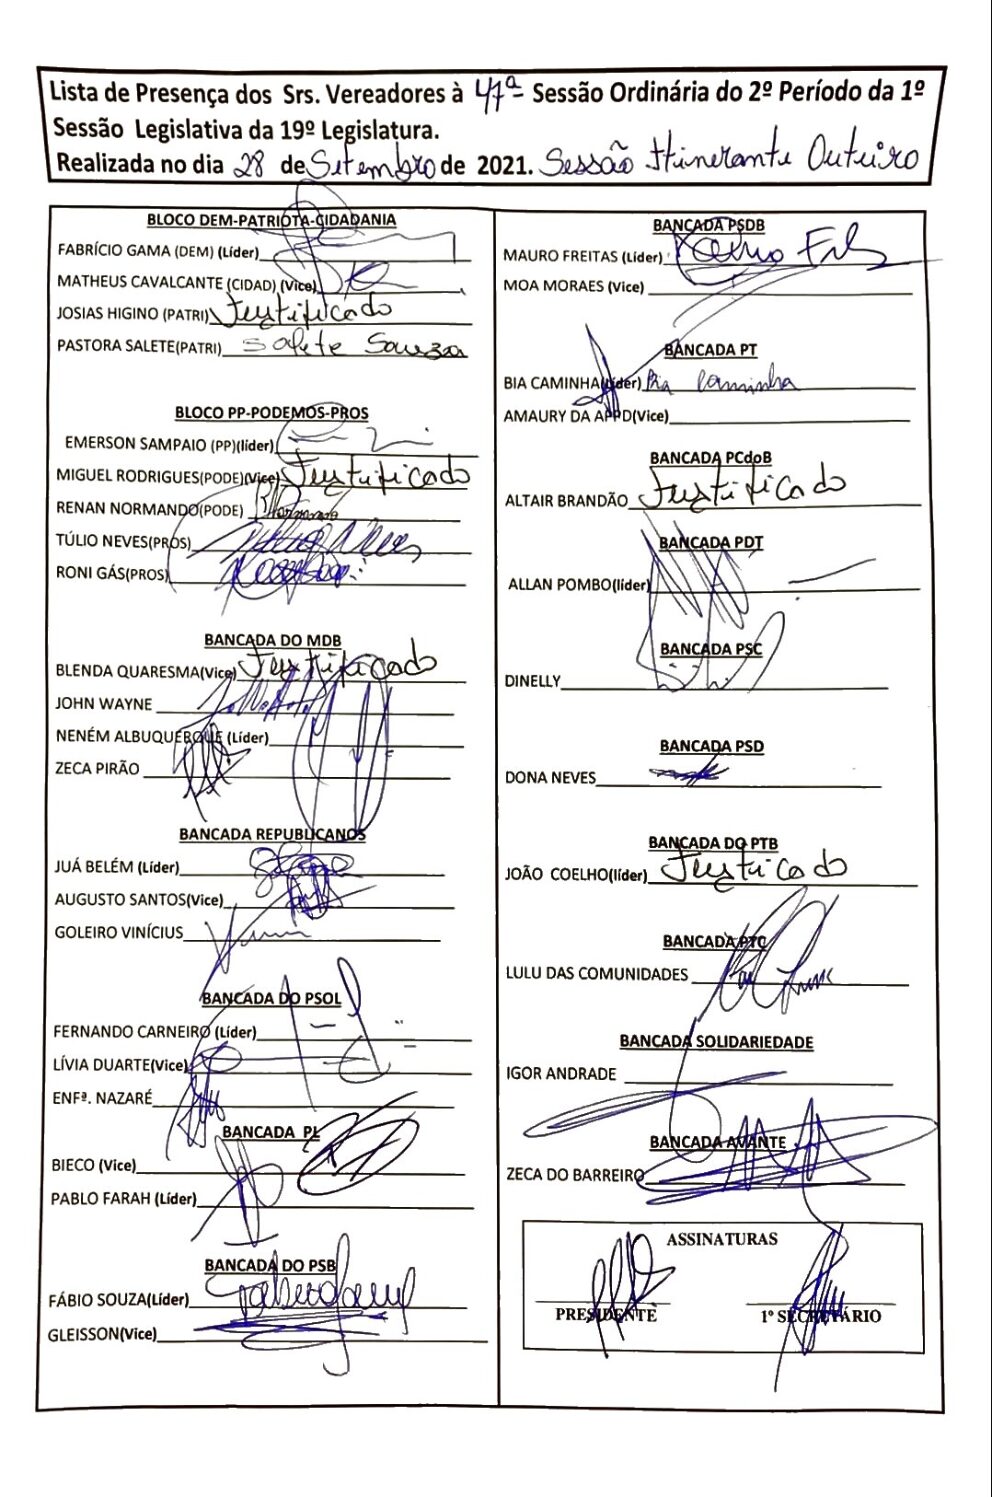 Lista de Presença dos Srs. Vereadores à 47ª Sessão Ordinária do 2º Período da 1º
Sessão Legislativa da 19º Legislatura.
Realizada no dia 28 de Setembro de 2021. Sessão Itinerante Outeiro
BLOCO DEM-PATRIOTA-CIDADANIA
FABRÍCIO GAMA (DEM) (Líder)
MATHEUS CAVALCANTE (CIDAD) (Vice)
JOSIAS HIGINO (PATRI) Justificado
PASTORA SALETE(PATRI) Salete Souza
BLOCO PP-PODEMOS-PROS
EMERSON SAMPAIO (PP)(líder)
MIGUEL RODRIGUES(PODE)(Vice) Justificado
RENAN NORMANDO(PODE)
TÚLIO NEVES(PROS) Neves
RONI GÁS(PROS)
BANCADA DO MDB
BLENDA QUARESMA(Vice) Justificado
JOHN WAYNE
NENÉM ALBUQUERQUE (Líder)
ZECA PIRÃO
BANCADA REPUBLICANOS
JUÁ BELÉM (Líder)
AUGUSTO SANTOS(Vice)
GOLEIRO VINÍCIUS
BANCADA DO PSOL
FERNANDO CARNEIRO (Líder)
LÍVIA DUARTE(Vice)
ENFª. NAZARÉ
BANCADA PL
BIECO (Vice)
PABLO FARAH (Líder)
BANCADA DO PSB
FÁBIO SOUZA(Líder)
GLEISSON(Vice)
BANCADA PSDB
MAURO FREITAS (Líder)
MOA MORAES (Vice)
BANCADA PT
BIA CAMINHA(Líder) Bia Caminha
AMAURY DA APPD(Vice)
BANCADA PCdoB
ALTAIR BRANDÃO Justificado
BANCADA PDT
ALLAN POMBO(líder)
BANCADA PSC
DINELLY
BANCADA PSD
DONA NEVES
BANCADA DO PTB
JOÃO COELHO(líder) Justicado
BANCADA PTC
LULU DAS COMUNIDADES
BANCADA SOLIDARIEDADE
IGOR ANDRADE
BANCADA AVANTE
ZECA DO BARREIRO
ASSINATURAS
PRESIDENTE 1º SECRETÁRIO